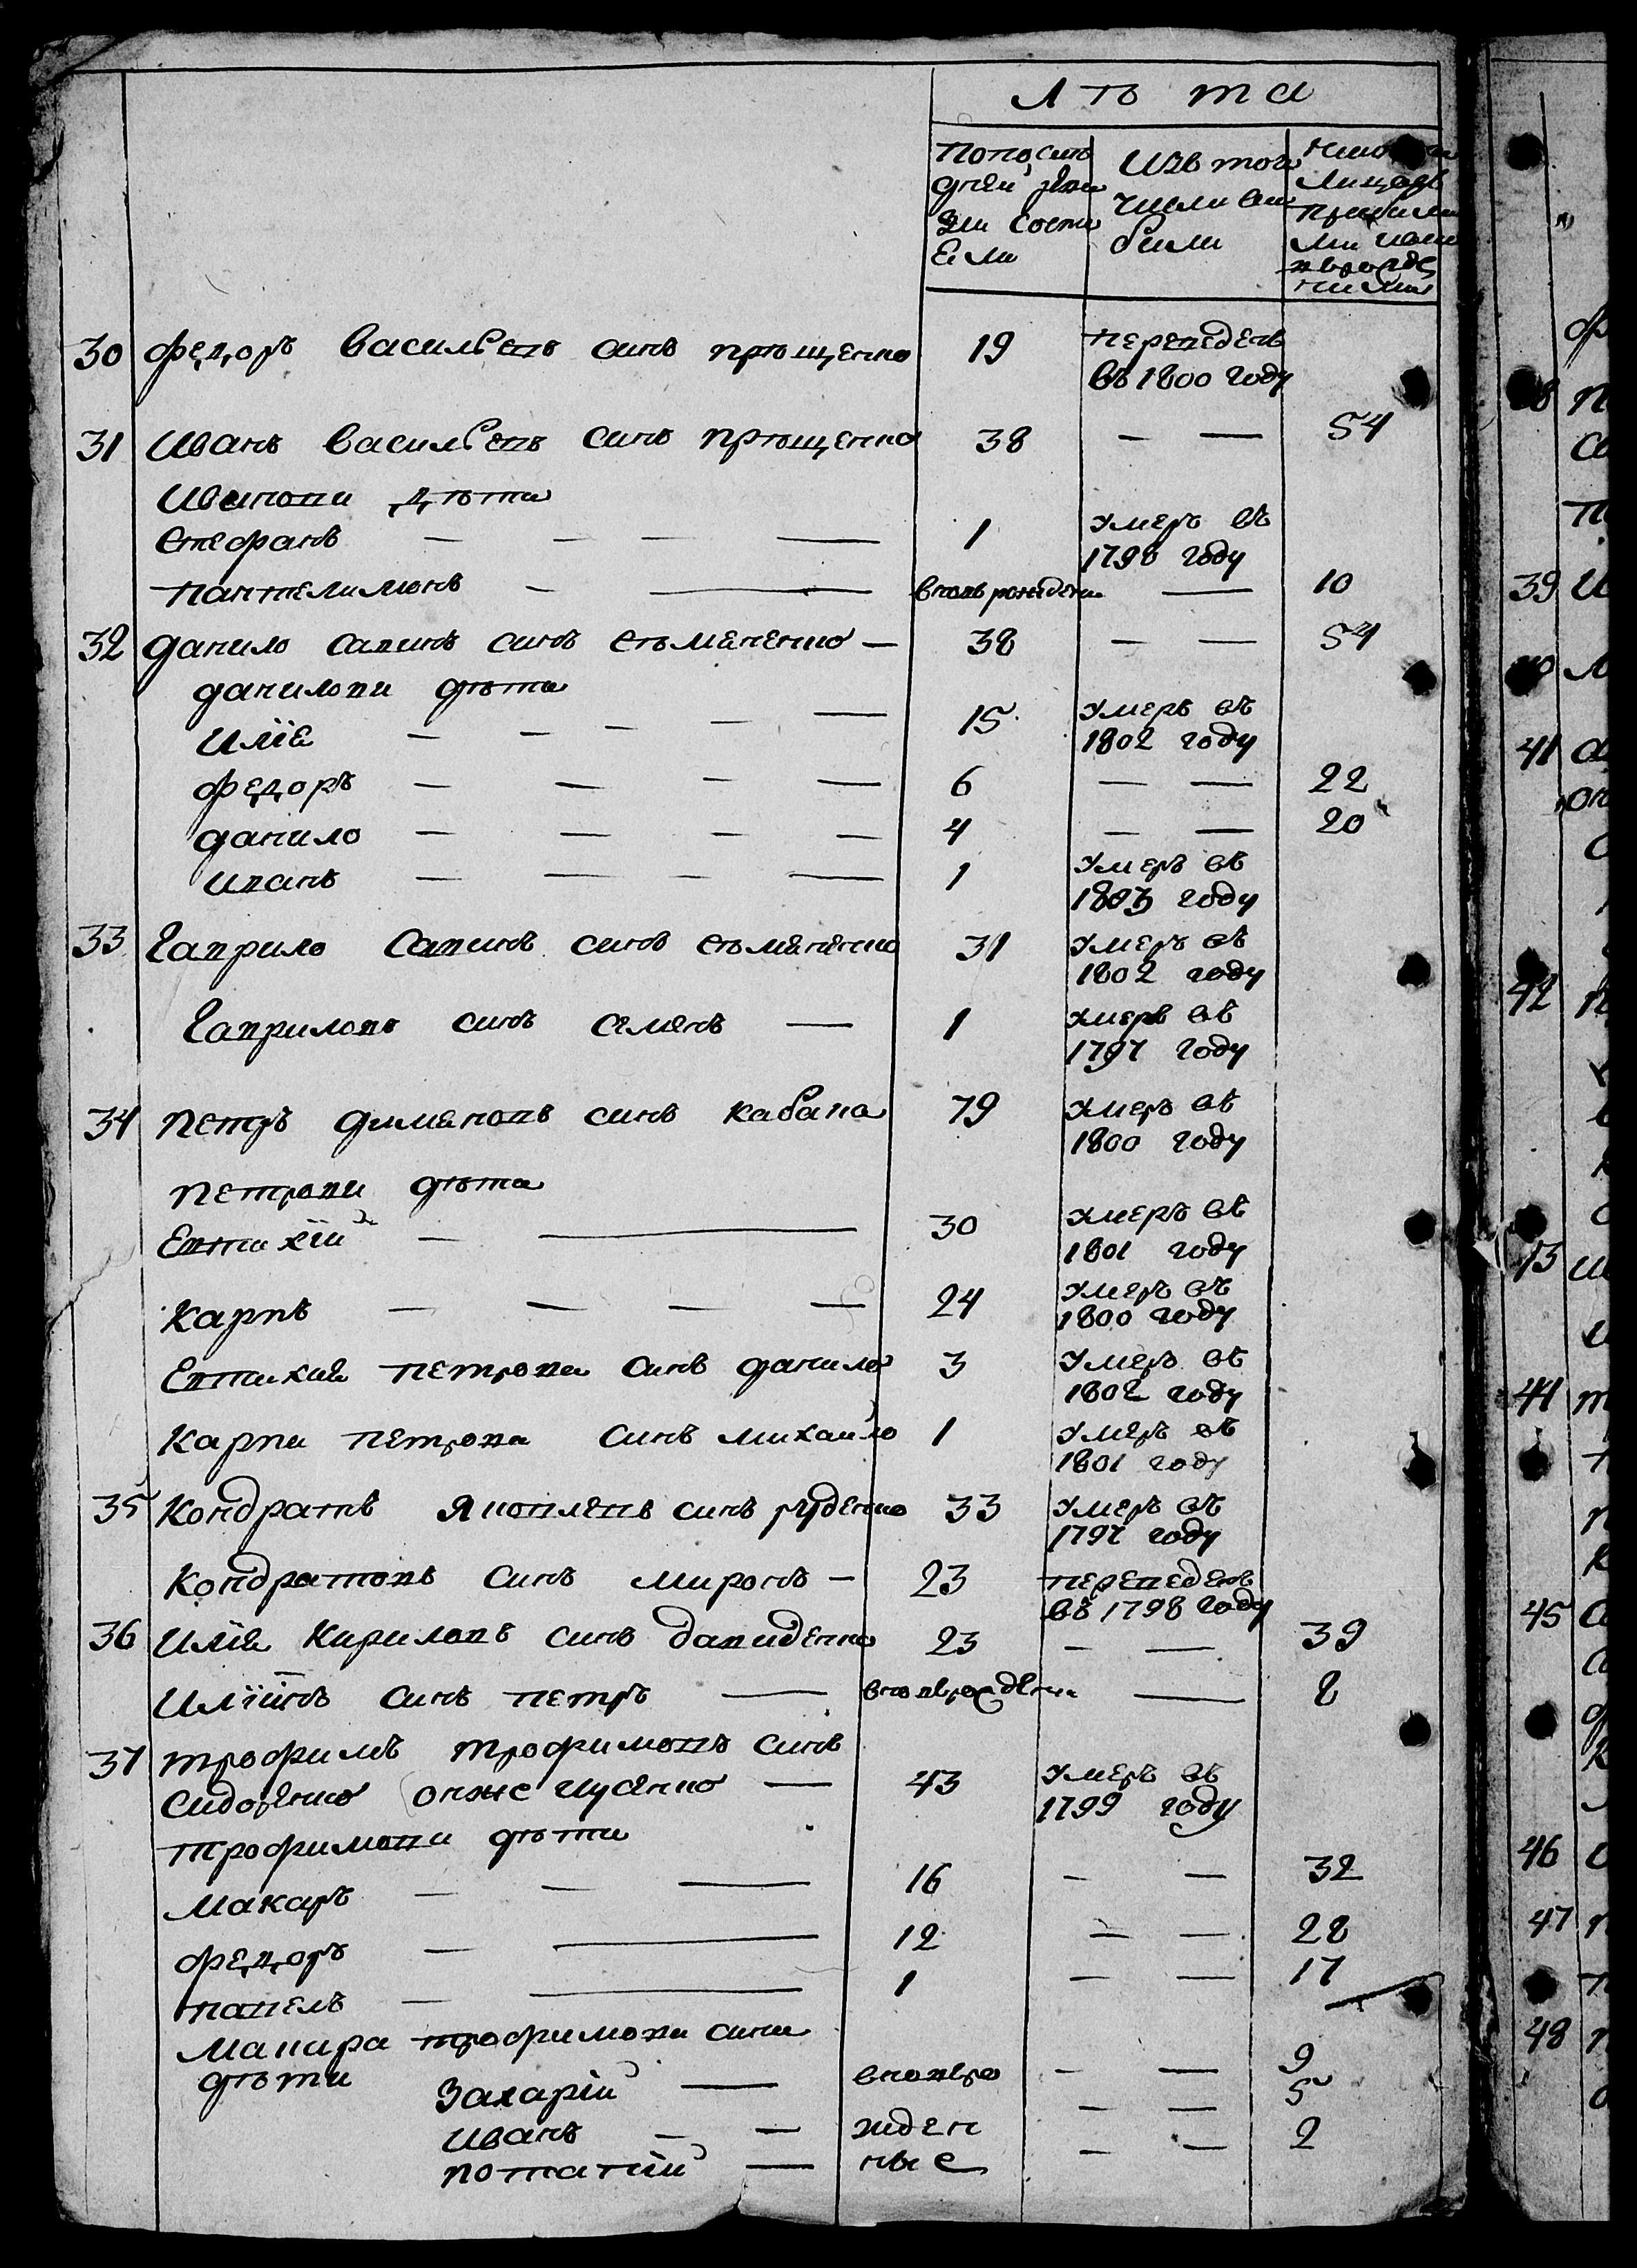 Лѣта
По по сле
дней реви
зіи состо
яли
Изъ того
числа вы
были
Ныне на
лицо съ
прибылы
ми и нов
рожде
нными
30 Федоръ Васильевъ синъ Прищенко 19 переведенъ
въ 1800 году
31 Иванъ Васильевъ синъ Прищенко 38 — — 54
Ивановы дѣти
Стефанъ — — — — 1 умеръ въ
1798 году
Пантелимонъ — — вновь рожденъ — 10
32 Данило Савинъ синъ Семененко — 38 — — 54
Даниловы дѣти
Илія — — — — — 15 умеръ въ
1802 году
Федоръ — — — — 6 — — 22
Данило — — — — 4 — — 20
Иванъ — — — — 1 умеръ въ
1803 году
33 Гаврило Савинъ синъ Семененко 31 умеръ въ
1802 году
Гавриловъ синъ Семенъ — 1 умеръ въ
1797 году
34 Петръ Дименовъ синъ Кабана 79 умеръ въ
1800 году
Петровы дѣти
Евтихій — — 30 умеръ въ
1801 году
Карпъ — — — — 24 умеръ въ
1800 году
Евтихия Петрова синъ Данило 3 умеръ въ
1802 году
Карпа Петрова синъ Михайло 1 умеръ въ
1801 году
35 Кондратъ Яковлевъ синъ Руденко 33 умеръ въ
1797 году
Кондратовъ синъ Миронъ — 23 переведенъ
въ 1798 году
36 Илія Кириловъ синъ Давиденко 23 — — 39
Иліинъ синъ Петръ — вновьрожденъ — 8
37 Трофимъ Трофимовъ синъ
Сидоренко онже Гусенко — 43 умеръ въ
1799 году
Трофимовы дѣти
Макаръ — — — 16 — — 32
Федоръ — — 12 — — 28
Павелъ — — 1 — — 17
Макара Трофимова сина
дѣти
Захарій — вновьро — — 9
Иванъ — — жден — — 5
Потапій — ные — — 2
38
39
40
41
42
43
44
45
46
47
48